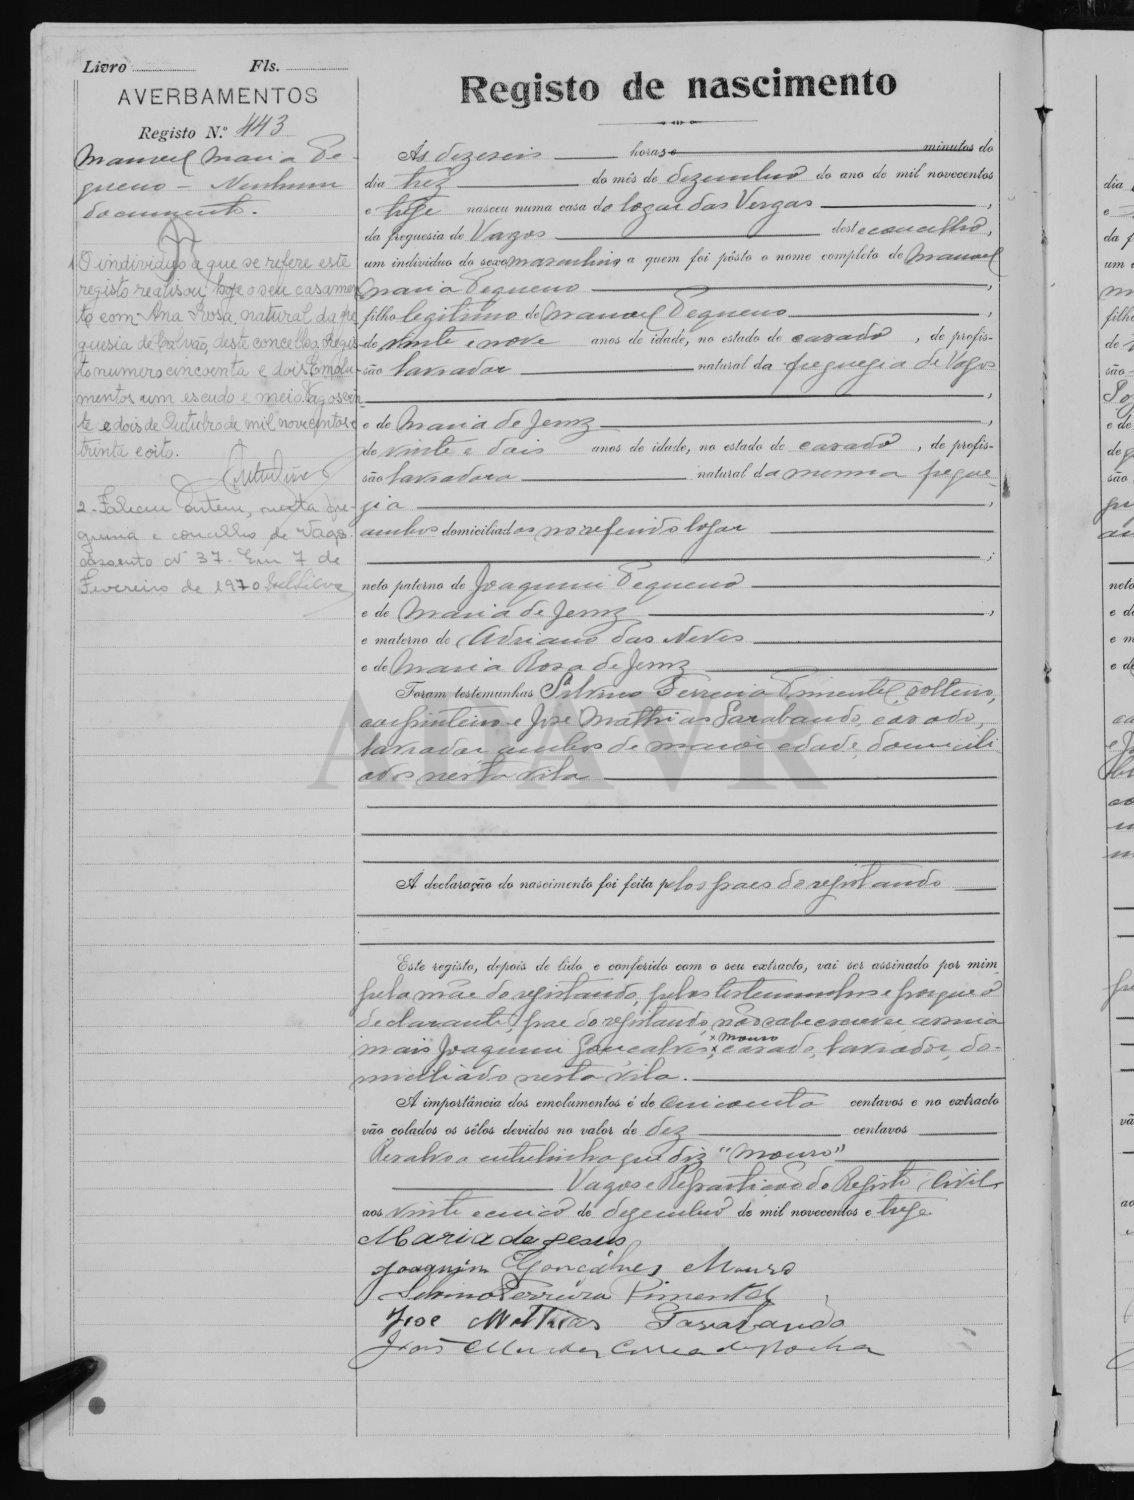 Livro Fls.
AVERBAMENTOS
Registo N.º 443
Manuel Maria Pe-
queno - Nenhum
documento.
1 O individuo a que se refere este
registo realisou hoje o seu casamen
to com Ana Rosa, natural da fre
guesia de Calvão, deste concelho. Regis
to numero cincoenta e dois. Emolu
mentos um escudo e meio. Vagos vin
te e dois de Outubro de mil novecentos e
trinta e oito.
2 - Faleceu ontem, nesta fre-
guesia e concelho de Vagos.
Assento Nº 37. Em 7 de
Fevereiro de 1970
Registo de nascimento
Ás dezeseis horas e minutos do
dia trez do mês de dezembro do ano de mil novecentos
e treze nasceu numa casa do logar das Vergas ,
da freguesia de Vagos deste concelho,
um individuo do sexo masculino a quem foi pôsto o nome completo de Manuel
Maria Pequeno ,
filho legitimo de Manuel Pequeno ,
de vinte e nove anos de idade, no estado de casado , de profis-
são lavrador natural da freguezia de Vagos
,
e de Maria de Jesuz
de vinte e dois anos de idade, no estado de casado , de profis-
são lavradora natural da mesma fregue-
zia ,
ambos domiciliados no referido logar
;
neto paterno de Joaquim Pequeno
e de Maria de Jesuz ,
e materno de Adriano das Neves
e de Maria Rosa de Jesuz
Foram testemunhas Silvino Ferreira Pimentel, solteiro,
carpinteiro e José Mathias Sarabando, casado,
lavrador, ambos de maior edade, domicili
ados nesta vila
A declaração do nascimento foi feita pelos paes do registando
Este registo, depois de lido e conferido com o seu extracto, vai ser assinado por mim,
pela mãe do registando, pelas testemunhas e porque o
declarante, pae do registando, não sabe escrever, assina
x Mouro
mais Joaquim Gonçalves, x casado, lavrador, do-
miciliado nesta vila.
A importância dos emolumentos é de cincoenta centavos e no extracto
vão colados os sêlos devidos no valor de dez centavos
Resalvo a entrelinha que diz "Mouro"
Vagos e Repartição do Registo Civil,
aos vinte e cinco de dezembro de mil novecentos e treze.
Maria de Jesus
Joaquim Gonçalves Mouro
Silvino Ferreira Pimentel
José Mathias Sarabando
ADAVR